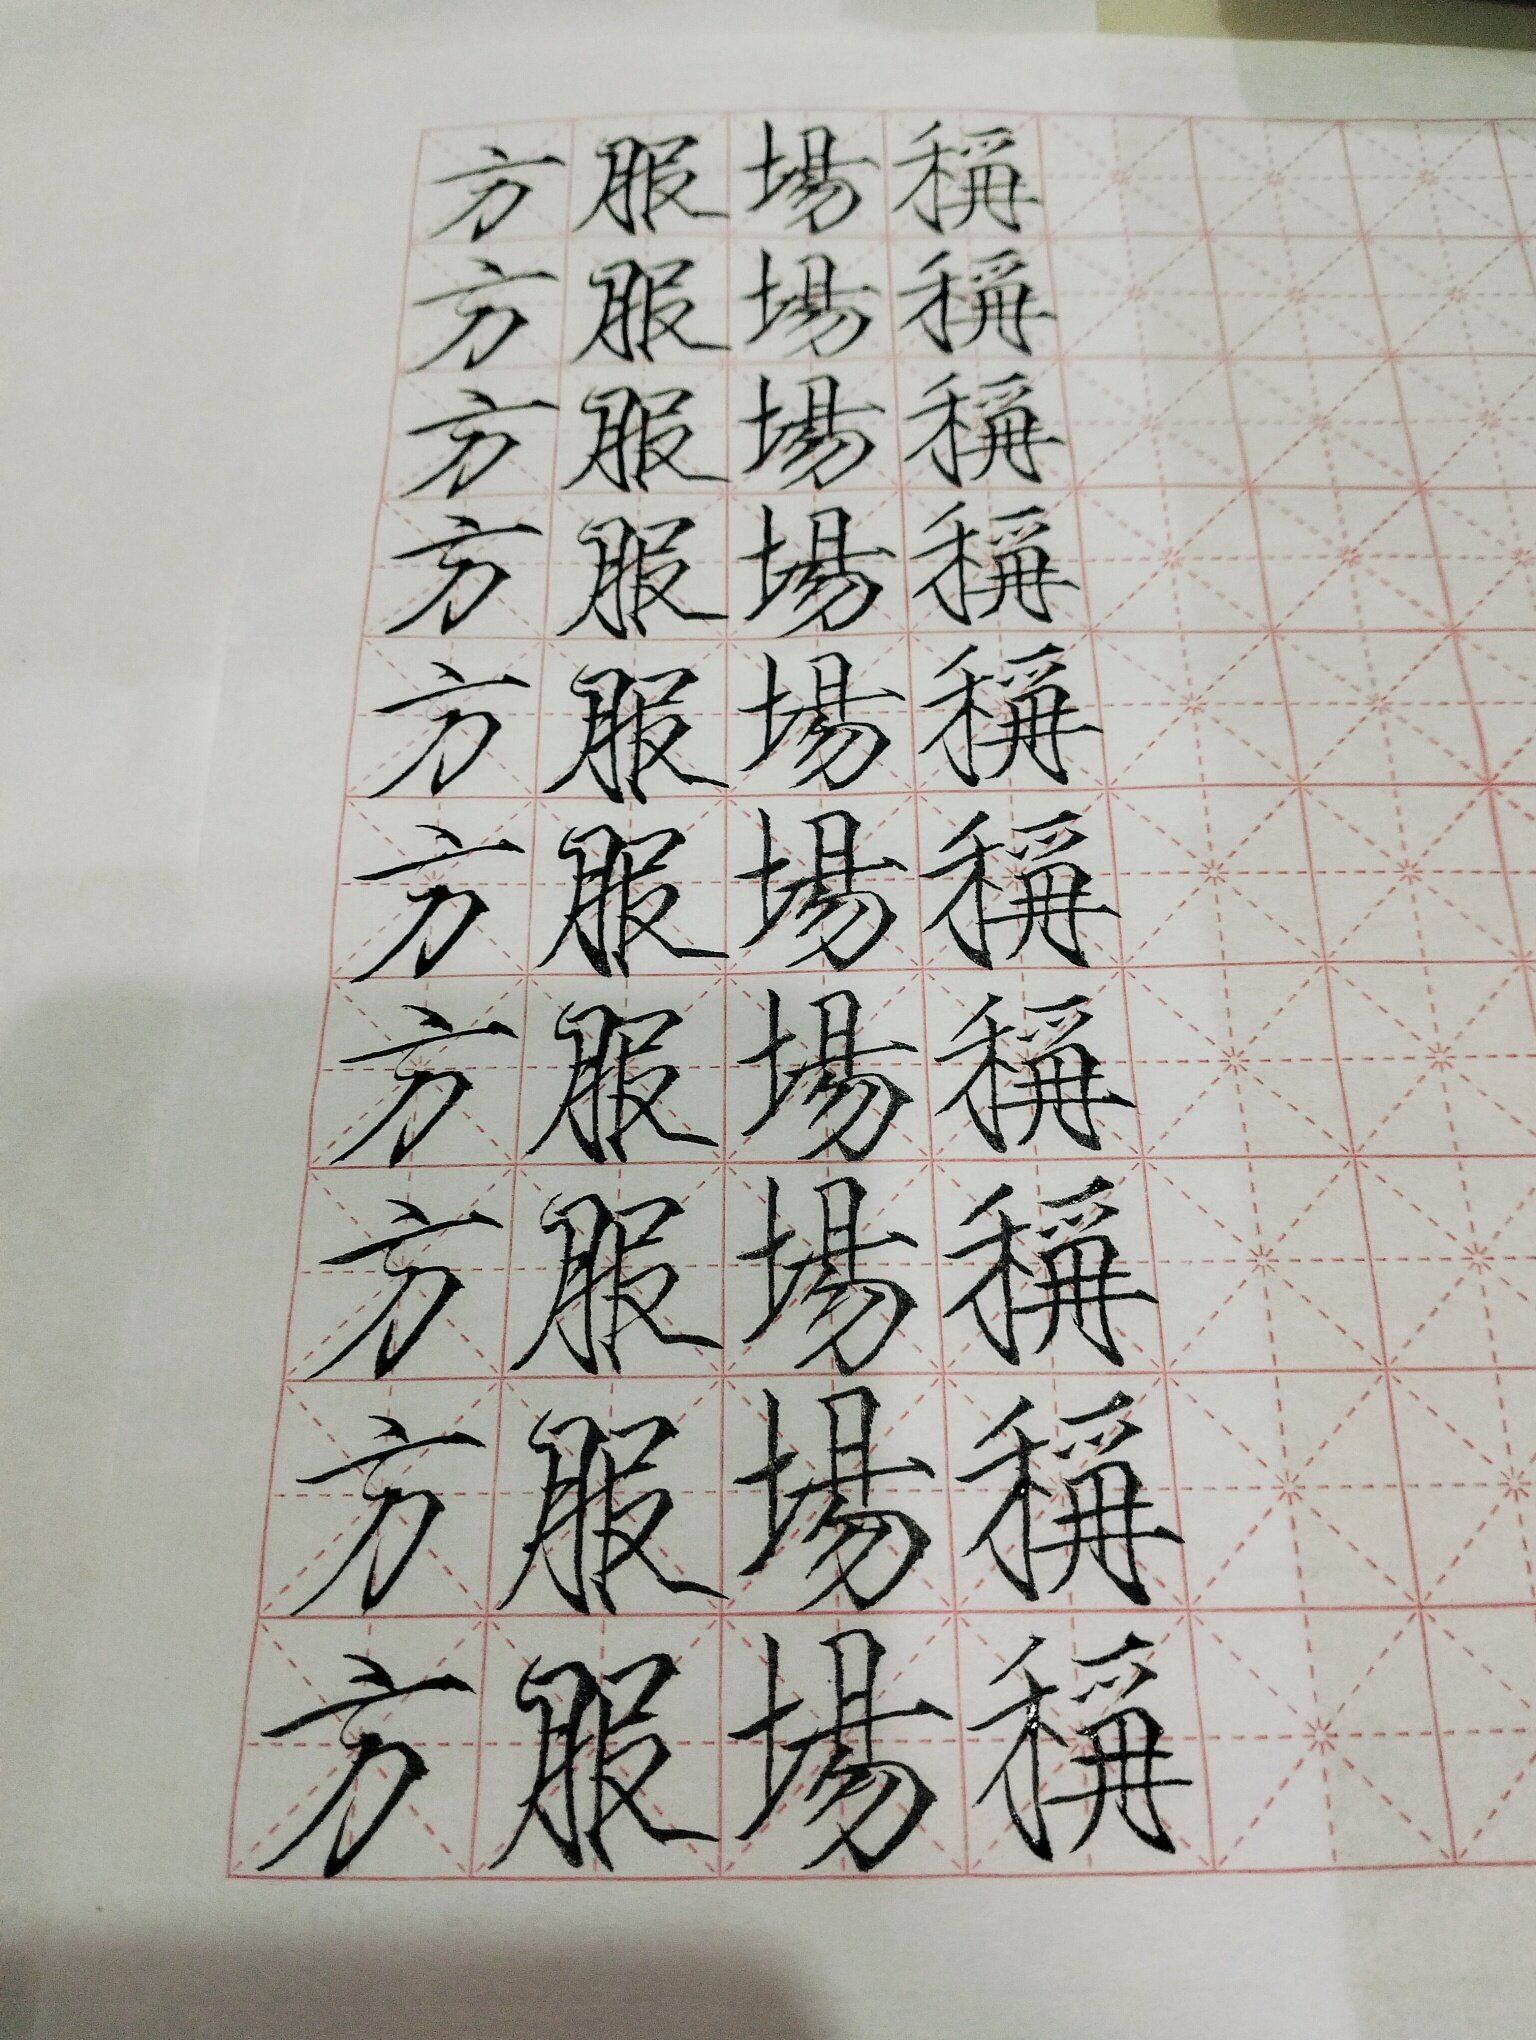 方服場稱
方服場稱
方服場稱
方服場稱
方服場稱
方服場稱
方服場稱
方服場稱
方服場稱
方服場稱